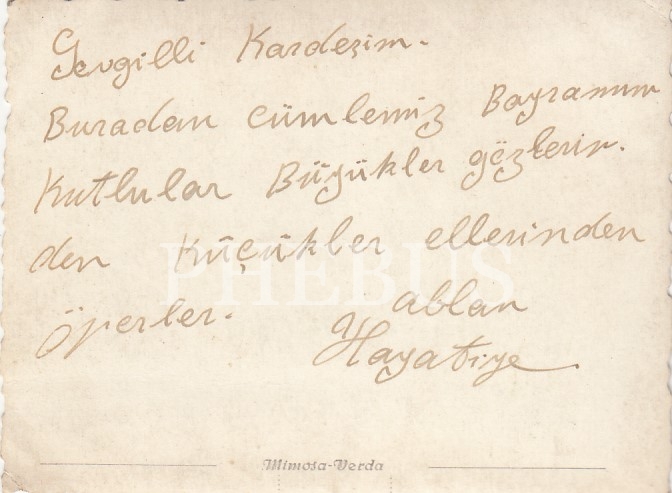 Sevgilli Kardeşim.
Buradan cümlemiz Bayramını
Kutlular Büyükler gözlerin.
den Küçükler ellerinden
Öperler.
ablan
Hayatiye
PHEBUS
Mimosa-Verda